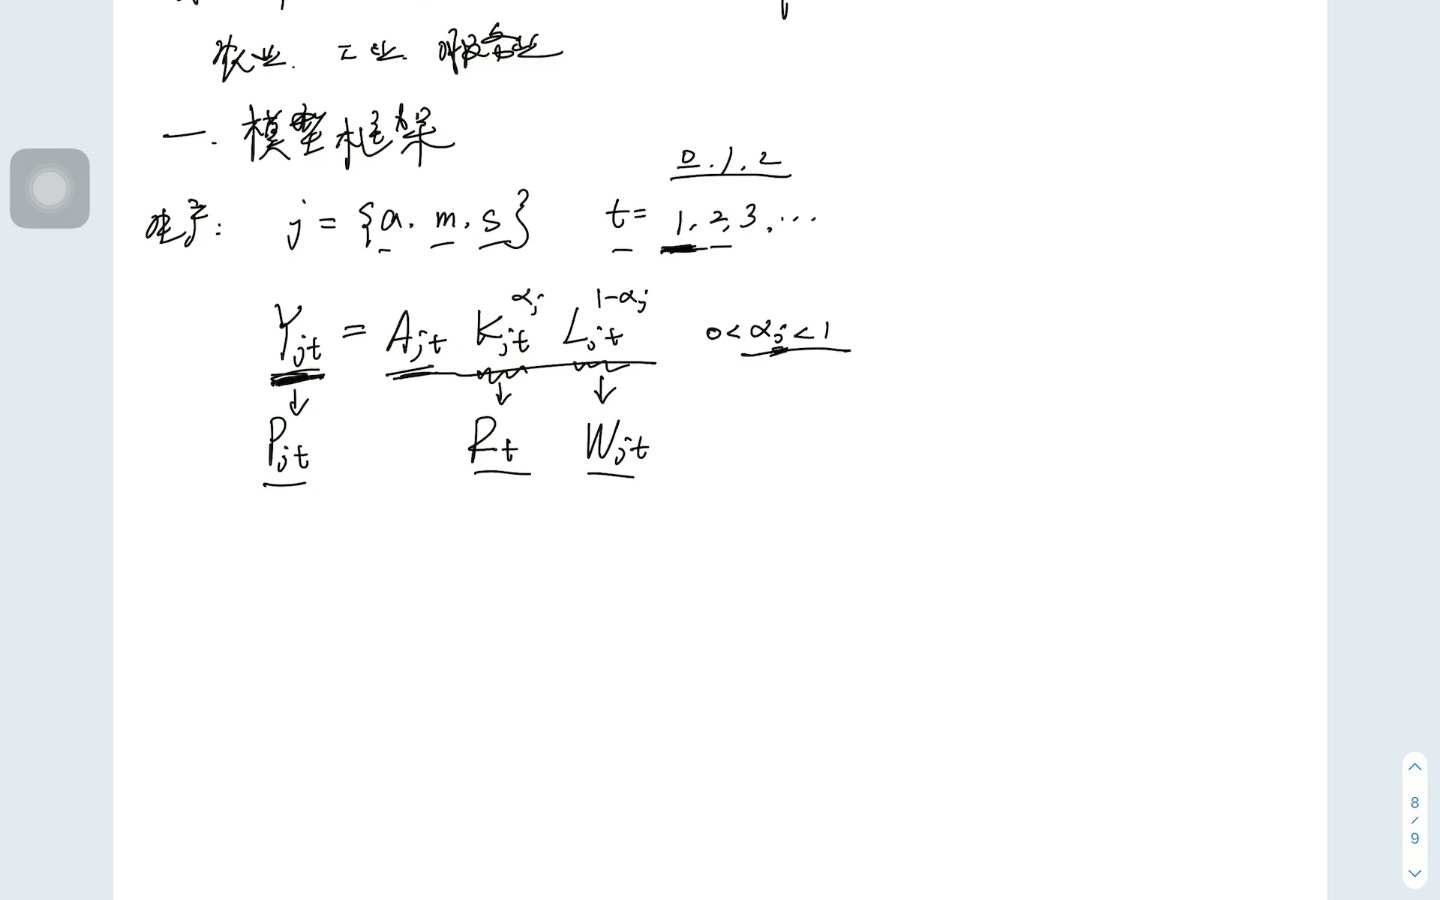 农业. 工业. 服务业
一. 模型框架
0. 1. 2
生产: j = {a. m. s} t = 1, 2, 3, ...
Y_{jt} = A_{jt} K_{jt}^{α_j} L_{jt}^{1-α_j} 0 < α_j < 1
↓ ↓ ↓
P_{jt} R_t W_{jt}
8
/
9